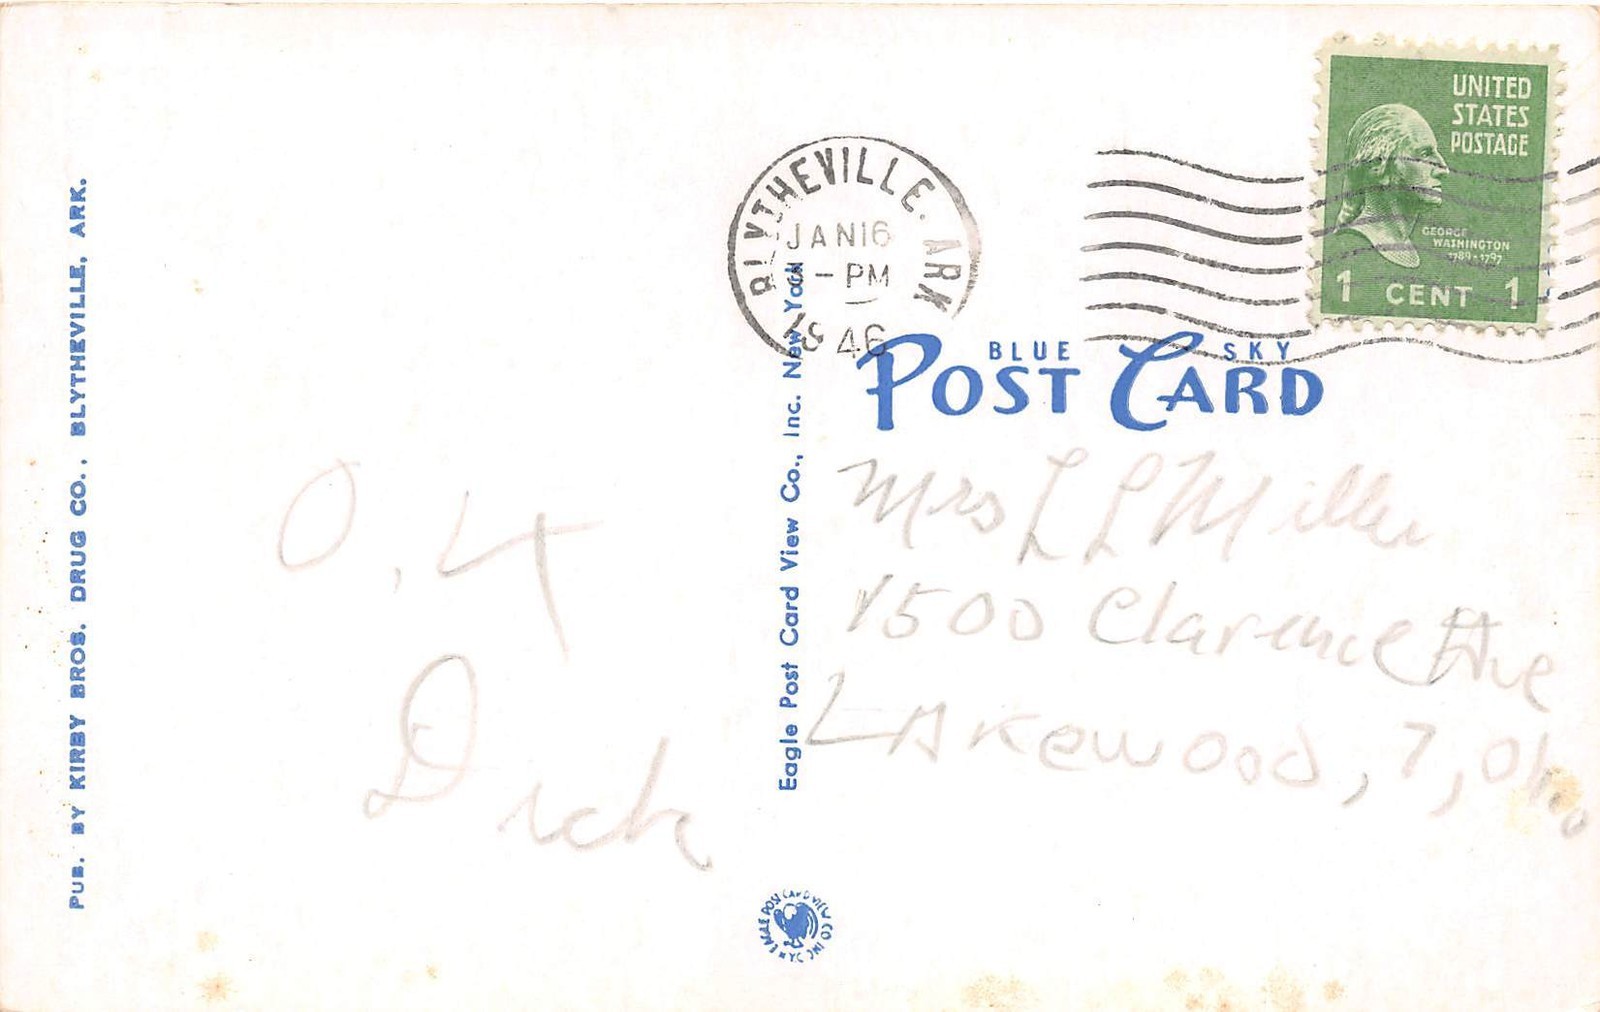 PUB. BY KIRBY BROS. DRUG CO., BLYTHEVILLE, ARK.
O.K
Dick
Eagle Post Card View Co., Inc. New York
EAGLE POST CARD VIEW CO INC N.Y.C.
BLYTHEVILLE. ARK
JAN 16
PM
1946
UNITED
STATES
POSTAGE
GEORGE
WASHINGTON
1789-1797
1 CENT 1
BLUE SKY
POST CARD
Mrs L L Miller
1500 Clarence Ave
LAkewood, 7, Oh.o